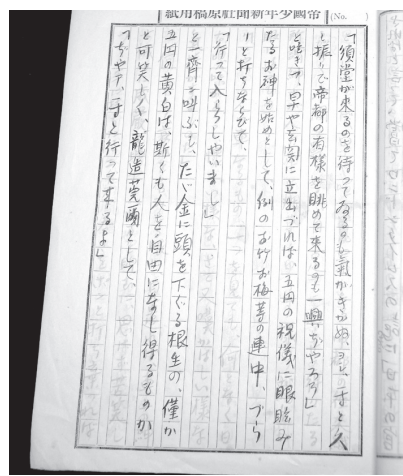 帝國少年新聞社原稿用紙
(No.　　)
「須堂が来るのを待つてゐるのも氣がきかぬ、ヨシ、一寸と久
と振りで帝都の有様を眺めて来るのも一興ぢやろう」
と呟きつ、早や玄関に立出づれば、五円の祝儀に眼眩み
たるお神を始めとして、例のお竹お梅等の連中、ずら
りと打ちならびて、
「行つて入らしやいまし」
と一齊に叫ぶも、たゞ金に頭を下ぐる根生の、僅か
五円の黄白は、斯くも人を自由になし得るものか
と可笑しく、龍造莞爾として、
「ぢやア、一寸と行つて来るよ」